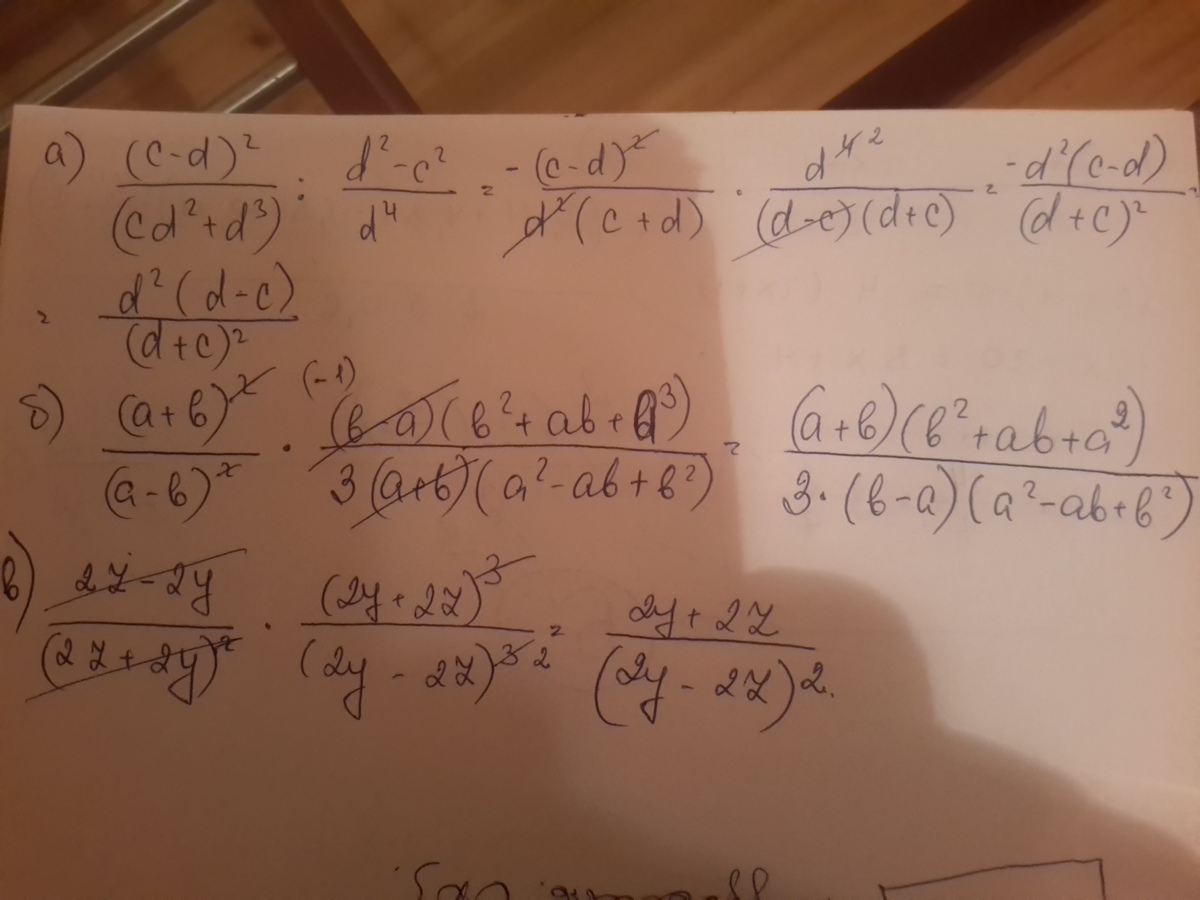 а) (c-d)² / (cd²+d³) : d²-c² / d⁴ = -(c-d)² / d²(c+d) · d⁴ ² / (d-c)(d+c) = -d²(c-d) / (d+c)² =
= d²(d-c) / (d+c)²
б) (a+b)² / (a-b)² · (-1) (b-a)(b²+ab+a³) / 3(a+b)(a²-ab+b²) = (a+b)(b²+ab+a²) / 3·(b-a)(a²-ab+b²)
в) 2z-2y / (2z+2y)² · (2y+2z)³ / (2y-2z)³ ² = 2y+2z / (2y-2z)2.